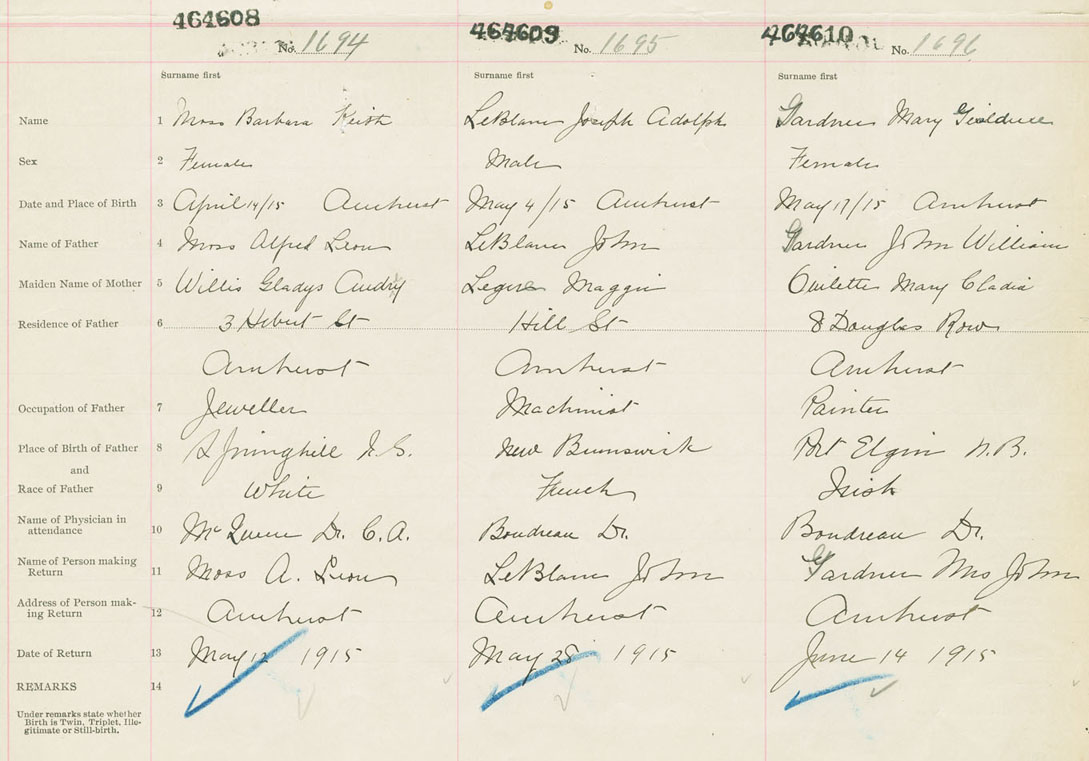 464608 464609 464610
No. 1694 No. 1695 No. 1696
Surname first Surname first Surname first
Name 1 Moss Barbara Keith LeBlanc Joseph Adolph Gardner Mary
Sex 2 Female Male Female
Date and Place of Birth 3 April 14/15 Amherst May 4/15 Amherst May 17/15 Amherst
Name of Father 4 Moss Alfred Leon LeBlanc John Gardner John William
Maiden Name of Mother 5 Willis Gladys Audry Legere Maggie Ouilette Mary Cladia
Residence of Father 6 3 Hebert St Hill St 8 Douglas Row
Amherst Amherst Amherst
Occupation of Father 7 Jeweller Machinist Painter
Place of Birth of Father 8 Springhill N.S. New Brunswick Port Elgin N.B.
and
Race of Father 9 White French Irish
Name of Physician in
attendance 10 McQueen Dr. C.A. Boudreau Dr. Boudreau Dr.
Name of Person making
Return 11 Moss A. Leon LeBlanc John Gardner Mrs John
Address of Person mak-
ing Return 12 Amherst Amherst Amherst
Date of Return 13 May 12 1915 May 28 1915 June 14 1915
REMARKS 14
Under remarks state whether
Birth is Twin, Triplet, Ille-
gitimate or Still-birth.